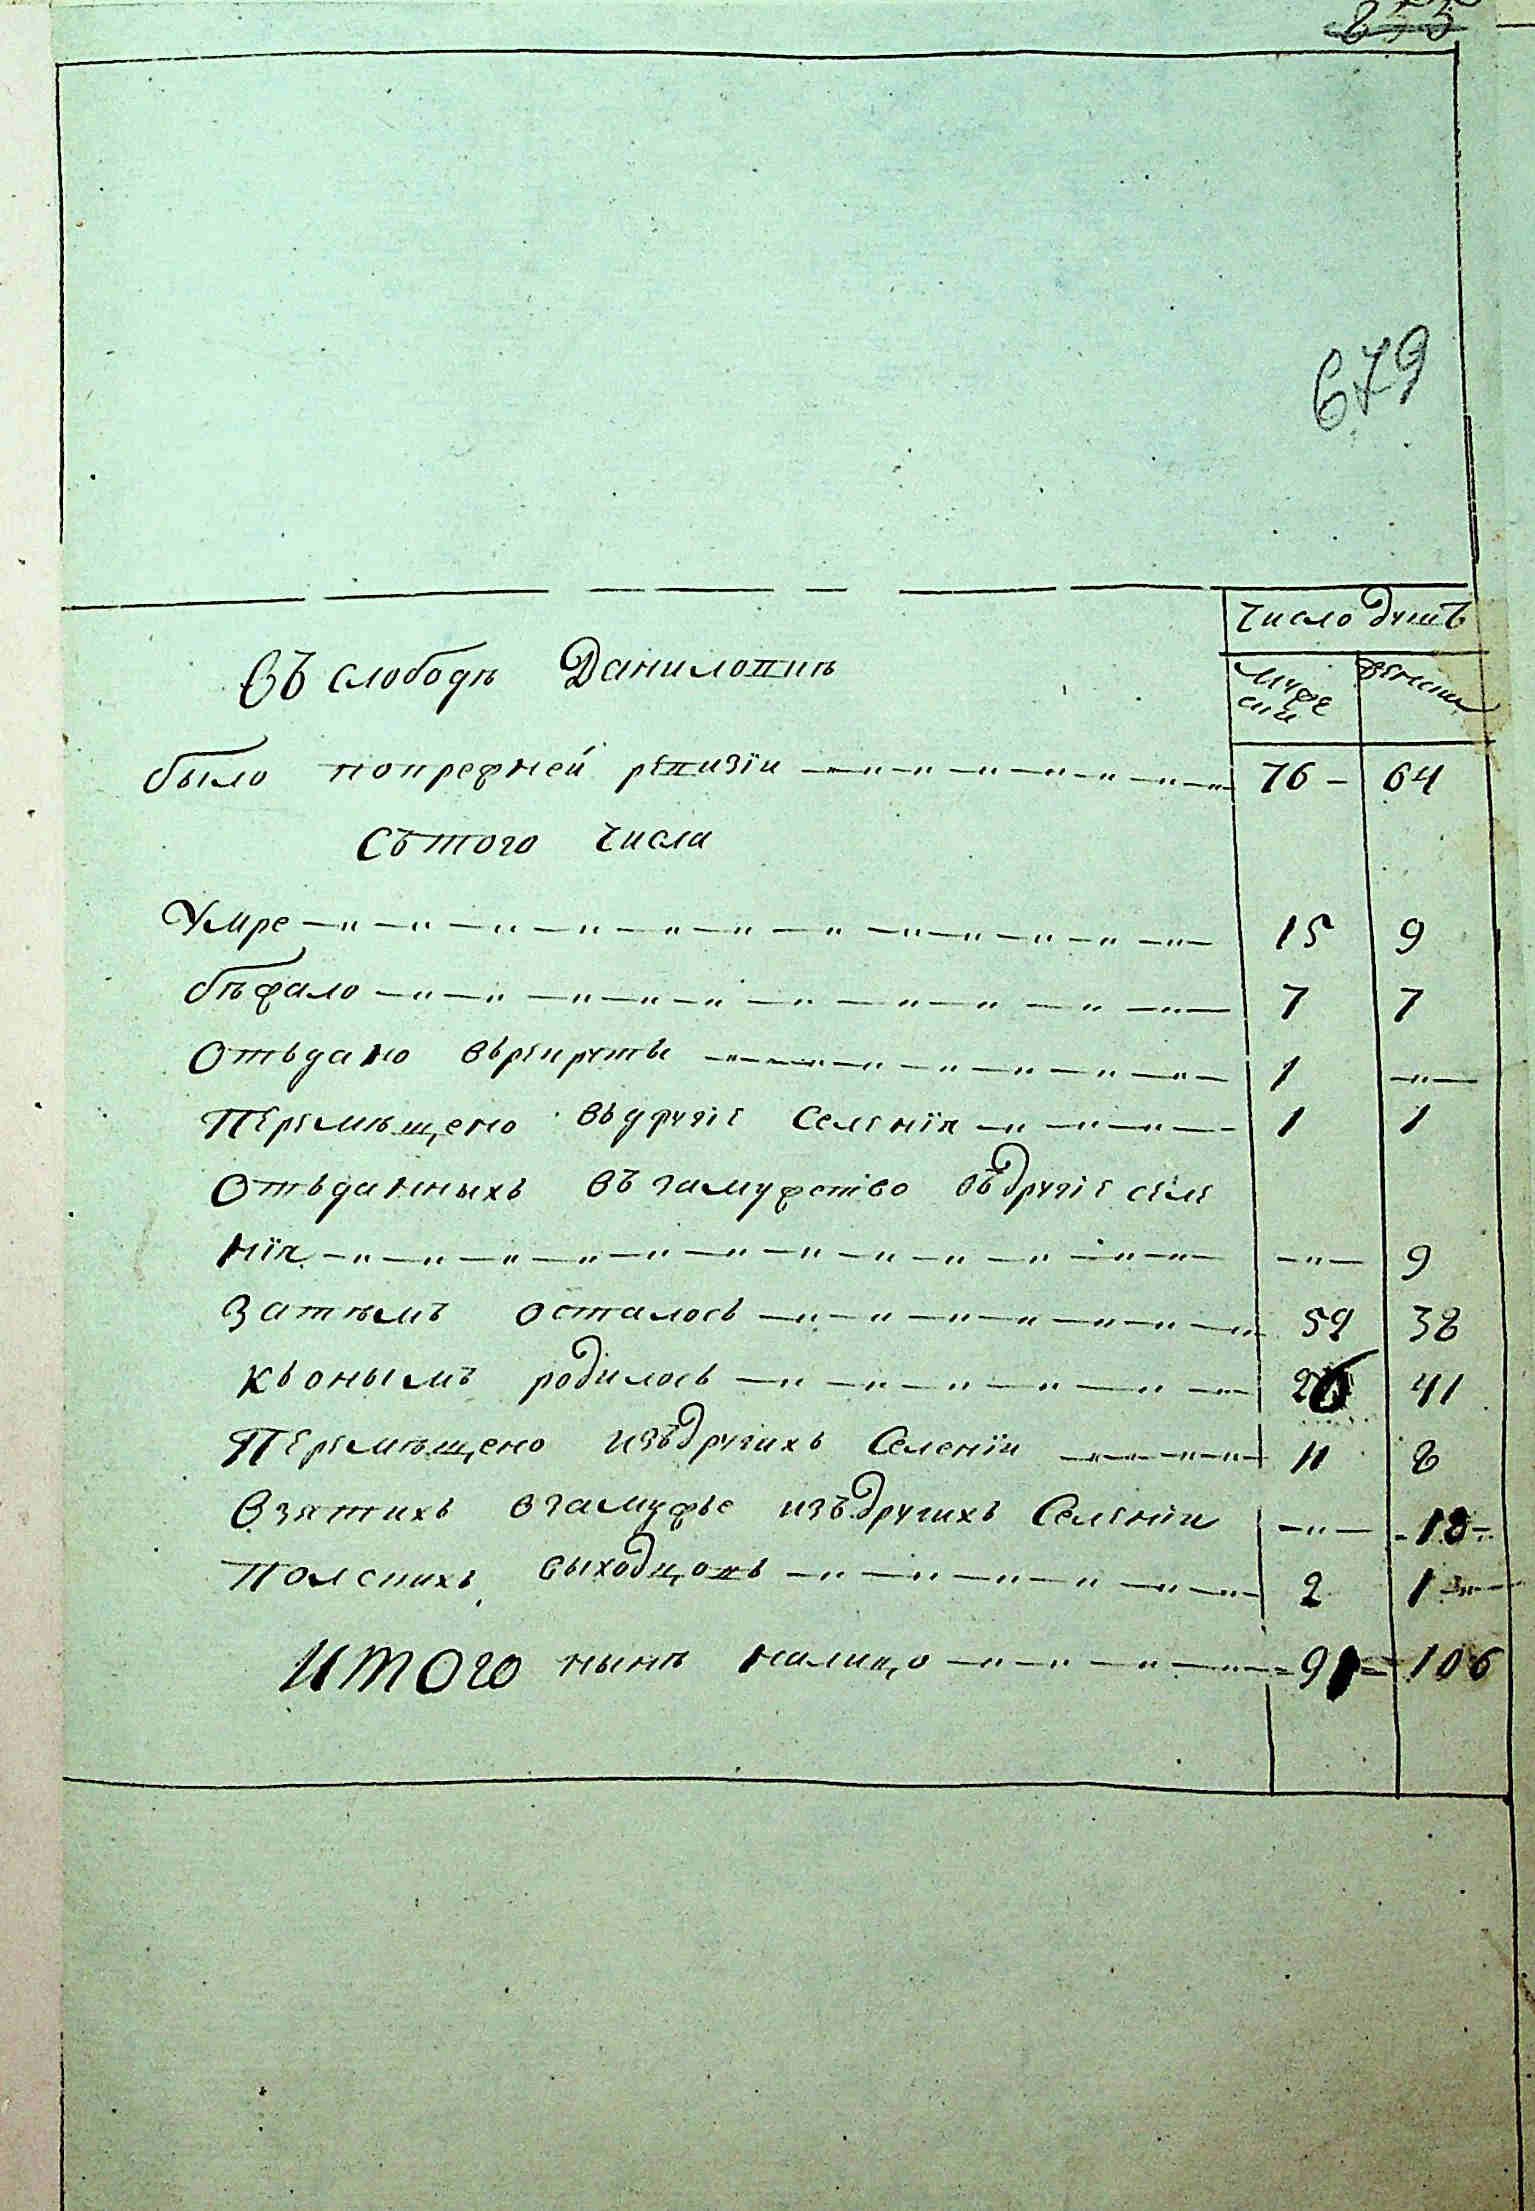 855
679
Число душъ
мужескъ женски
Въ слободѣ Даниловкѣ
было попрежней ревизіи 76 64
Съ того числа
Умре 15 9
бѣжало 7 7
Отъдано въ рекруты 1
Перемѣщено въ другіе Селенія 1 1
Отъданныхъ въ замужство въ другіе селе
нія 9
Затѣмъ осталось 52 38
Къ онымъ родилось 26 41
Перемѣщено изъ другихъ Селеніи 11 8
Взятихъ взамужье изъ другихъ Селеніи 18
Полскихъ выходцовъ 2 1
Итого нынѣ налицо 91 106